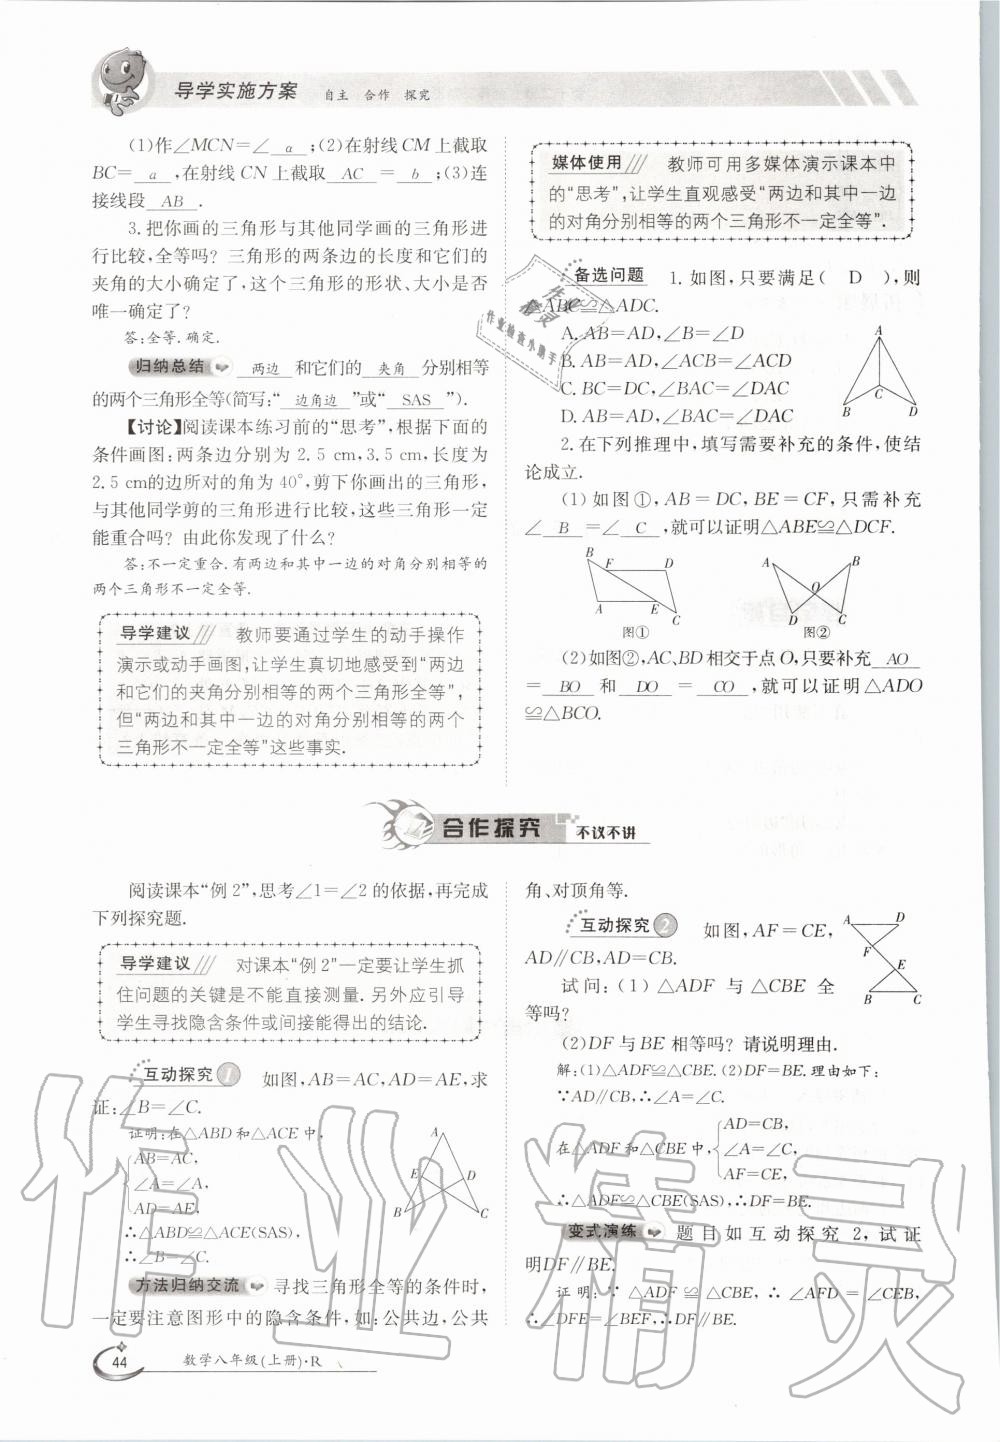 导学实施方案 自主 合作 探究
(1)作∠MCN=∠ α ;(2)在射线 CM 上截取
BC= a ,在射线 CN 上截取 AC = b ;(3)连
接线段 AB .
3.把你画的三角形与其他同学画的三角形进
行比较,全等吗? 三角形的两条边的长度和它们的
夹角的大小确定了,这个三角形的形状、大小是否
唯一确定了?
答:全等.确定.
归纳总结 两边 和它们的 夹角 分别相等
的两个三角形全等(简写:“ 边角边 ”或“ SAS ”).
【讨论】阅读课本练习前的“思考”,根据下面的
条件画图:两条边分别为 2.5 cm,3.5 cm,长度为
2.5 cm的边所对的角为 40°,剪下你画出的三角形,
与其他同学剪的三角形进行比较,这些三角形一定
能重合吗? 由此你发现了什么?
答:不一定重合.有两边和其中一边的对角分别相等的
两个三角形不一定全等.
导学建议 教师要通过学生的动手操作
演示或动手画图,让学生真切地感受到“两边
和它们的夹角分别相等的两个三角形全等”,
但“两边和其中一边的对角分别相等的两个
三角形不一定全等”这些事实.
媒体使用 教师可用多媒体演示课本中
的“思考”,让学生直观感受“两边和其中一边
的对角分别相等的两个三角形不一定全等”.
备选问题 1.如图,只要满足( D ),则
△ABC≌△ADC.
A. AB=AD,∠B=∠D
B. AB=AD,∠ACB=∠ACD
C. BC=DC,∠BAC=∠DAC
D. AB=AD,∠BAC=∠DAC
A
C
B D
2.在下列推理中,填写需要补充的条件,使结
论成立.
(1)如图①,AB=DC,BE=CF,只需补充
∠ B =∠ C ,就可以证明△ABE≌△DCF.
B F D
A E C
图①
A B
O
D C
图②
(2)如图②,AC、BD相交于点 O,只要补充 AO
= BO 和 DO = CO ,就可以证明△ADO
≌△BCO.
合作探究 不议不讲
阅读课本“例 2”,思考∠1=∠2 的依据,再完成
下列探究题.
导学建议 对课本“例 2”一定要让学生抓
住问题的关键是不能直接测量.另外应引导
学生寻找隐含条件或间接能得出的结论.
互动探究 1 如图,AB=AC,AD=AE,求
证:∠B=∠C.
证明:在△ABD 和△ACE 中,
AB=AC,
∠A=∠A,
AD=AE,
∴△ABD≌△ACE(SAS),
∴∠B=∠C.
A
E D
B C
方法归纳交流 寻找三角形全等的条件时,
一定要注意图形中的隐含条件,如:公共边、公共
角、对顶角等.
互动探究 2 如图,AF=CE,
AD∥CB,AD=CB.
试问:(1)△ADF 与△CBE 全
等吗?
A D
F
E
B C
(2)DF 与 BE 相等吗? 请说明理由.
解:(1)△ADF≌△CBE.(2)DF=BE.理由如下:
∵AD∥CB,∴∠A=∠C.
在△ADF 和△CBE 中,
AD=CB,
∠A=∠C,
AF=CE,
∴△ADF≌△CBE(SAS),∴DF=BE.
变式演练 题目如互动探究 2,试证
明DF∥BE.
证明:∵△ADF≌△CBE,∴∠AFD=∠CEB,
∴∠DFE=∠BEF,∴DF∥BE.
44 数学八年级(上册)·R
作业精灵
作业检查小助手
作业精灵